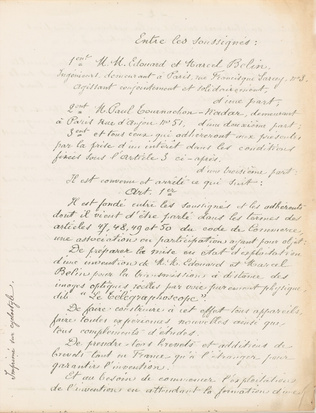 Entre les soussignés :
1ent M.M. Edouard et Marcel Belin,
Ingénieurs, demeurant à Paris, rue Francisque Sarcey, N° 3.
Agissant conjointement et solidairement,
d'une part;
2ent M. Paul Tournachon-Nadar, demeurant
à Paris rue d'Anjou N° 51, d'une deuxième part;
3ent et tous ceux qui adhèreront aux présentes
par la prise d'un intérêt dans les conditions
fixées sous l'article 5 ci-après,
d'une troisième part.
Il est convenu et arrêté ce qui suit :
Art. 1er
Il est fondé entre les soussignés et les adhérents
dont il vient d'être parlé dans les termes des
articles 47, 48, 49 et 50 du code de Commerce,
une association en participation ayant pour objet :
De préparer la mise en état d'exploitation
d'une invention de M.M. Edouard et Marcel
Belin pour la transmission à distance, des
images optiques réelles par voie purement physique,
dit "Le Télégraphoscope".
De faire construire à cet effet tous appareils,
faire toutes expériences nouvelles ainsi que
tous compléments d'études.
De prendre tous brevets et additions de
brevets tant en France qu'à l'étranger pour
garantir l'invention.
Et au besoin de commencer l'exploitation
de l'invention en attendant la formation
Imprimé sur cyclostyle.